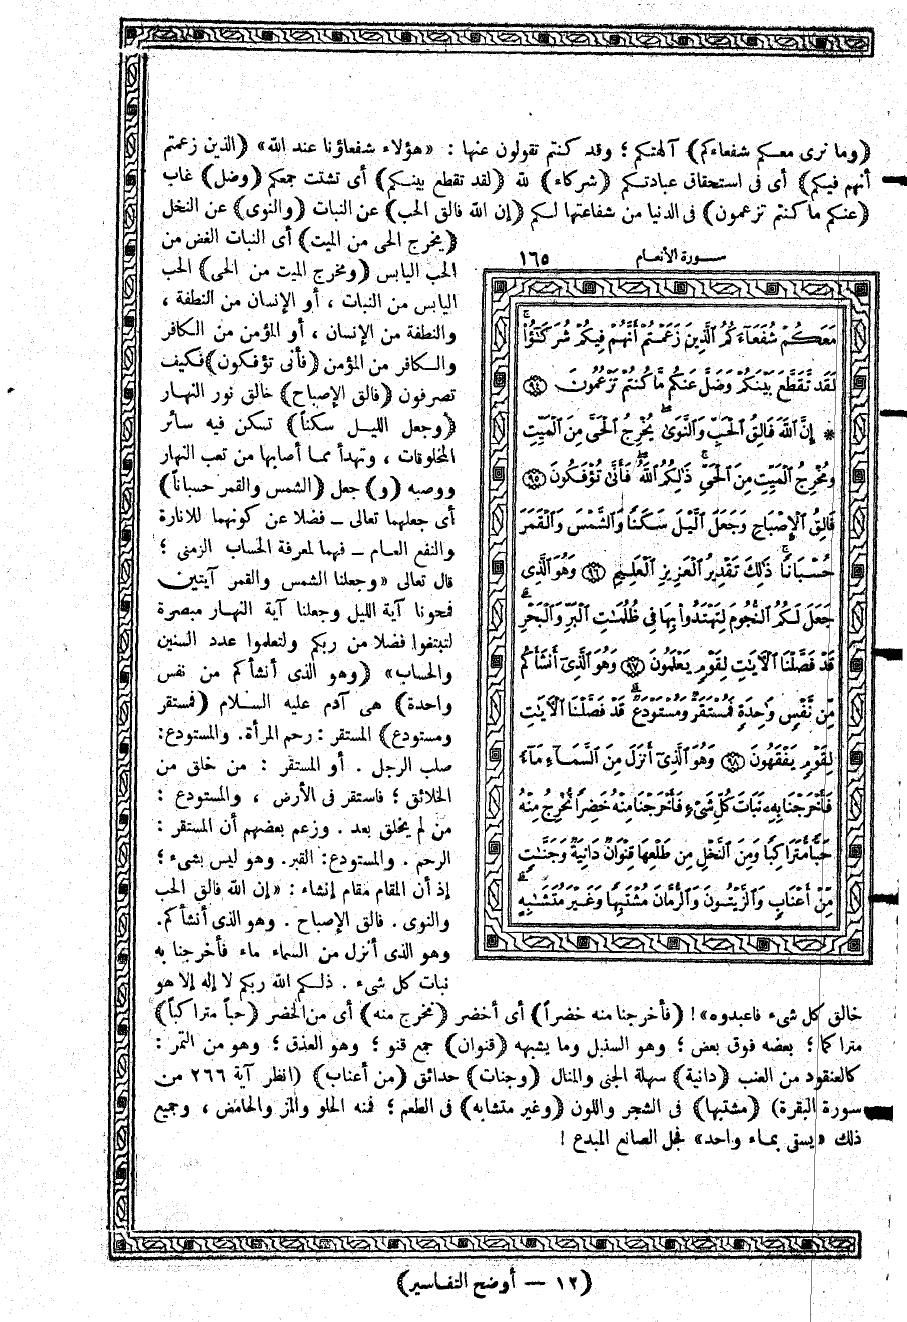 (وما نرى معكم شفعاءكم) آلهتكم ؛ وقد كنتم تقولون عنها : «هؤلاء شفعاؤنا عند الله» (الذين زعمتم
أنهم فيكم) أى فى استحقاق عبادتكم (شركاء) لله (لقد تقطع بينكم) أى تشتت جمعكم (وضل) غاب
(عنكم ما كنتم تزعمون) فى الدنيا من شفاعتها لكم (إن الله فالق الحب) عن النبات (والنوى) عن النخل
(يخرج الحى من الميت) أى النبات الغض من
الحب اليابس (ومخرج الميت من الحى) الحب
اليابس من النبات ، أو الإنسان من النطفة ،
والنطفة من الإنسان ، أو المؤمن من الكافر
والكافر من المؤمن (فأنى تؤفكون) فكيف
تصرفون (فالق الإصباح) خالق نور النهار
(وجعل الليل سكناً) تسكن فيه سائر
المخلوقات ، وتهدأ مما أصابها من تعب النهار
ووصبه (و) جعل (الشمس والقمر حسباناً)
أى جعلهما تعالى – فضلا عن كونهما للانارة
والنفع العام – فهما لمعرفة الحساب الزمنى ؛
قال تعالى «وجعلنا الشمس والقمر آيتين
فمحونا آية الليل وجعلنا آية النهار مبصرة
لتبتغوا فضلا من ربكم ولتعلموا عدد السنين
والحساب» (وهو الذى أنشأكم من نفس
واحدة) هى آدم عليه السلام (فمستقر
ومستودع) المستقر : رحم المرأة. والمستودع:
صلب الرجل . أو المستقر : من خلق من
الخلائق ؛ فاستقر فى الأرض ، والمستودع :
من لم يخلق بعد . وزعم بعضهم أن المستقر :
الرحم . والمستودع: القبر. وهو ليس بشىء ؛
إذ أن المقام مقام إنشاء : «إن الله فالق الحب
والنوى . فالق الإصباح . وهو الذى أنشأكم.
وهو الذى أنزل من السماء ماء فأخرجنا به
نبات كل شىء . ذلكم الله ربكم لا إله إلا هو
سورة الأنعام ١٦٥
مَعَكُمْ شُفَعَآءَكُمُ ٱلَّذِينَ زَعَمْتُمْ أَنَّهُمْ فِيكُمْ شُرَكَٰٓؤُا۟ۚ
لَقَد تَّقَطَّعَ بَيْنَكُمْ وَضَلَّ عَنكُم مَّا كُنتُمْ تَزْعُمُونَ ﴿٩٤﴾
* إِنَّ ٱللَّهَ فَالِقُ ٱلْحَبِّ وَٱلنَّوَىٰۖ يُخْرِجُ ٱلْحَىَّ مِنَ ٱلْمَيِّتِ
وَمُخْرِجُ ٱلْمَيِّتِ مِنَ ٱلْحَىِّۚ ذَٰلِكُمُ ٱللَّهُۖ فَأَنَّىٰ تُؤْفَكُونَ ﴿٩٥﴾
فَالِقُ ٱلْإِصْبَاحِ وَجَعَلَ ٱلَّيْلَ سَكَنًا وَٱلشَّمْسَ وَٱلْقَمَرَ
حُسْبَانًاۚ ذَٰلِكَ تَقْدِيرُ ٱلْعَزِيزِ ٱلْعَلِيمِ ﴿٩٦﴾ وَهُوَ ٱلَّذِى
جَعَلَ لَكُمُ ٱلنُّجُومَ لِتَهْتَدُوا۟ بِهَا فِى ظُلُمَٰتِ ٱلْبَرِّ وَٱلْبَحْرِۗ
قَدْ فَصَّلْنَا ٱلْءَايَٰتِ لِقَوْمٍ يَعْلَمُونَ ﴿٩٧﴾ وَهُوَ ٱلَّذِىٓ أَنشَأَكُم
مِّن نَّفْسٍ وَٰحِدَةٍ فَمُسْتَقَرٌّ وَمُسْتَوْدَعٌۗ قَدْ فَصَّلْنَا ٱلْءَايَٰتِ
لِقَوْمٍ يَفْقَهُونَ ﴿٩٨﴾ وَهُوَ ٱلَّذِىٓ أَنزَلَ مِنَ ٱلسَّمَآءِ مَآءً
فَأَخْرَجْنَا بِهِۦ نَبَاتَ كُلِّ شَىْءٍ فَأَخْرَجْنَا مِنْهُ خَضِرًا نُّخْرِجُ مِنْهُ
حَبًّا مُّتَرَاكِبًا وَمِنَ ٱلنَّخْلِ مِن طَلْعِهَا قِنْوَانٌ دَانِيَةٌ وَجَنَّٰتٍ
مِّنْ أَعْنَابٍ وَٱلزَّيْتُونَ وَٱلرُّمَّانَ مُشْتَبِهًا وَغَيْرَ مُتَشَٰبِهٍۗ
خالق كل شىء فاعبدوه»! (فأخرجنا منه خضراً) أى أخضر (نخرج منه) أى من الخضر (حباً متراكباً)
متراكما ؛ بعضه فوق بعض ؛ وهو السنبل وما يشبهه (قنوان) جمع قنو ؛ وهو العذق ؛ وهو من التمر :
كالعنقود من العنب (دانية) سهلة الجنى والمنال (وجنات) حدائق (من أعناب) (انظر آية ٢٦٦ من
سورة البقرة) (مشتبها) فى الشجر واللون (وغير متشابه) فى الطعم ؛ فمنه الحلو والمز والحامض ، وجميع
ذلك «يسقى بماء واحد» فجل الصانع المبدع !
(١٢ — أوضح التفاسير)